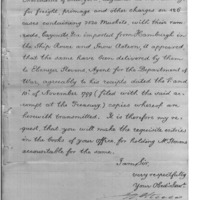 for freight, primage and other charges on 126
cases containing 2520 Muskets, with their ram
rods, bayonets &c imported from Hamburgh in
the Ship and Snow it appeared
that the same have been delivered by them
to Ebenezer Stevens Agent for the Department of
War, agreeably to his receipts dated the 8 and
of November 1799 (filed with the said ac-
compt at the Treasury) copies whereof are
herewith transmitted. It is therefore my re-
quest that you will make the requisite entries
in the books of your office for holding Mr. Stevens
accountable for the same.
I am Sir,
very respectfully
Your Obedt. Servt.